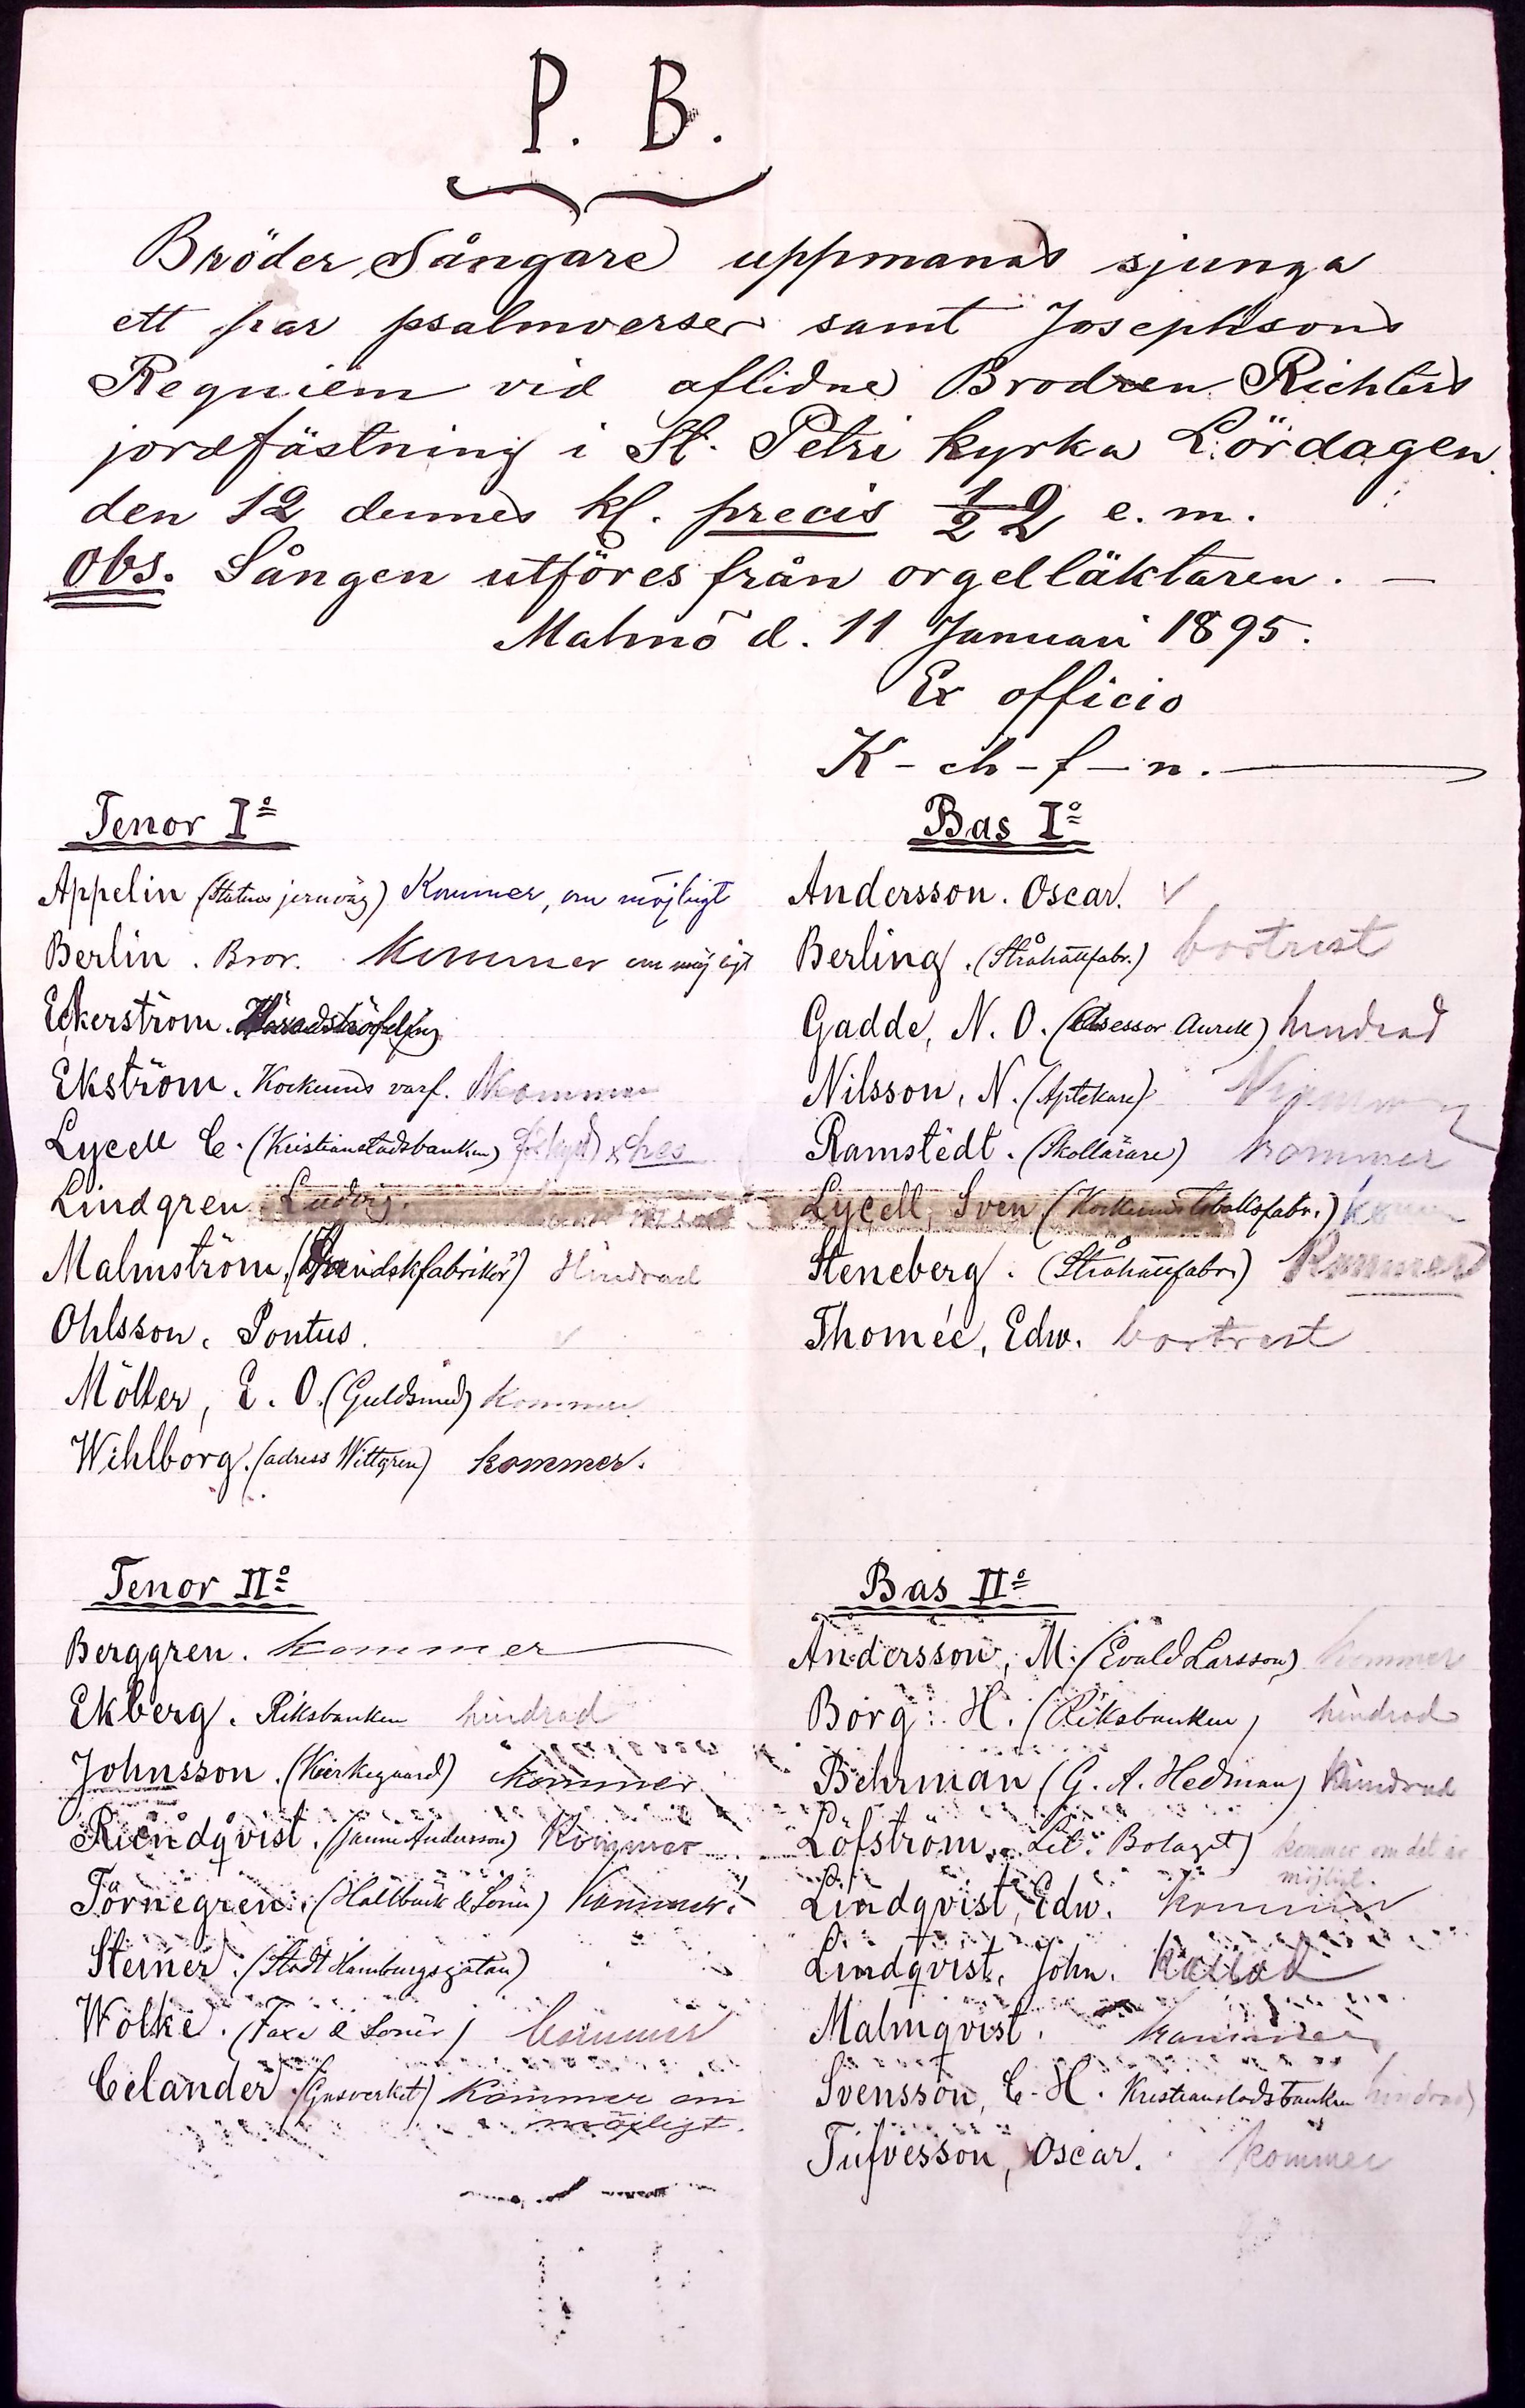 P. B.
Bröder Sångare uppmanas sjunga
ett par psalmverser samt Josephsons
Requiem vid aflidne Brodren Richters
jordfästning i St. Petri kyrka Lördagen
den 12 dennes kl. precis 1/2 2 e.m.
Obs. Sången utföres från orgelläktaren. —
Malmö d. 11 Januari 1895.
Ex officio
K-ch-f-n.
Tenor Io
Appelin (Statens jernväg) Kommer, om möjligt
Berlin. Bror. Kommer om möjligt
Eckerström.
Ekström. Kockums varf. Kommer
Lycell C. (Kristianstadsbanken) hes
Lindgren Ludvig.
Malmström, (Handskfabrikör) Hindrad
Ohlsson, Pontus. v
Möller, E. O. (Guldsmed) kommer
Wihlborg. (adress Wittgren) kommer.
Bas Io
Andersson. Oscar. v
Berling. (Stråhattfabr.) bortrest
Gadde, N. O. (Assessor Aurell) hindrad
Nilsson, N. (Aptekare)
Ramstedt. (Skollärare) kommer
Lycell, Sven (Kockums tobaksfabr.)
Steneberg. (Stråhattfabr.) Kommer
Thomée, Edw. bortrest
Tenor IIo
Berggren. kommer
Ekberg. Riksbanken hindrad
Johnsson. (Kierkegaard) kommer
Rundqvist. (Janne Andersson) Kommer
Törnegren. (Hallbäck & Söner) kommer.
Steiner. (Stadt Hamburgsgatan)
Wolke. (Faxe & Söner) kommer
Celander (Gasverket) Kommer om
möjligt.
Bas IIo
Andersson, M. (Evald Larsson) kommer
Borg. H. (Riksbanken) hindrad
Behrman (G. A. Hedman) hindrad
Löfström. Bolaget) kommer om det är
möjligt.
Lindqvist, Edw. kommer
Lindqvist, John.
Malmqvist. kommer
Svensson, C. H. Kristianstadsbanken hindrad
Tufvesson, Oscar. kommer